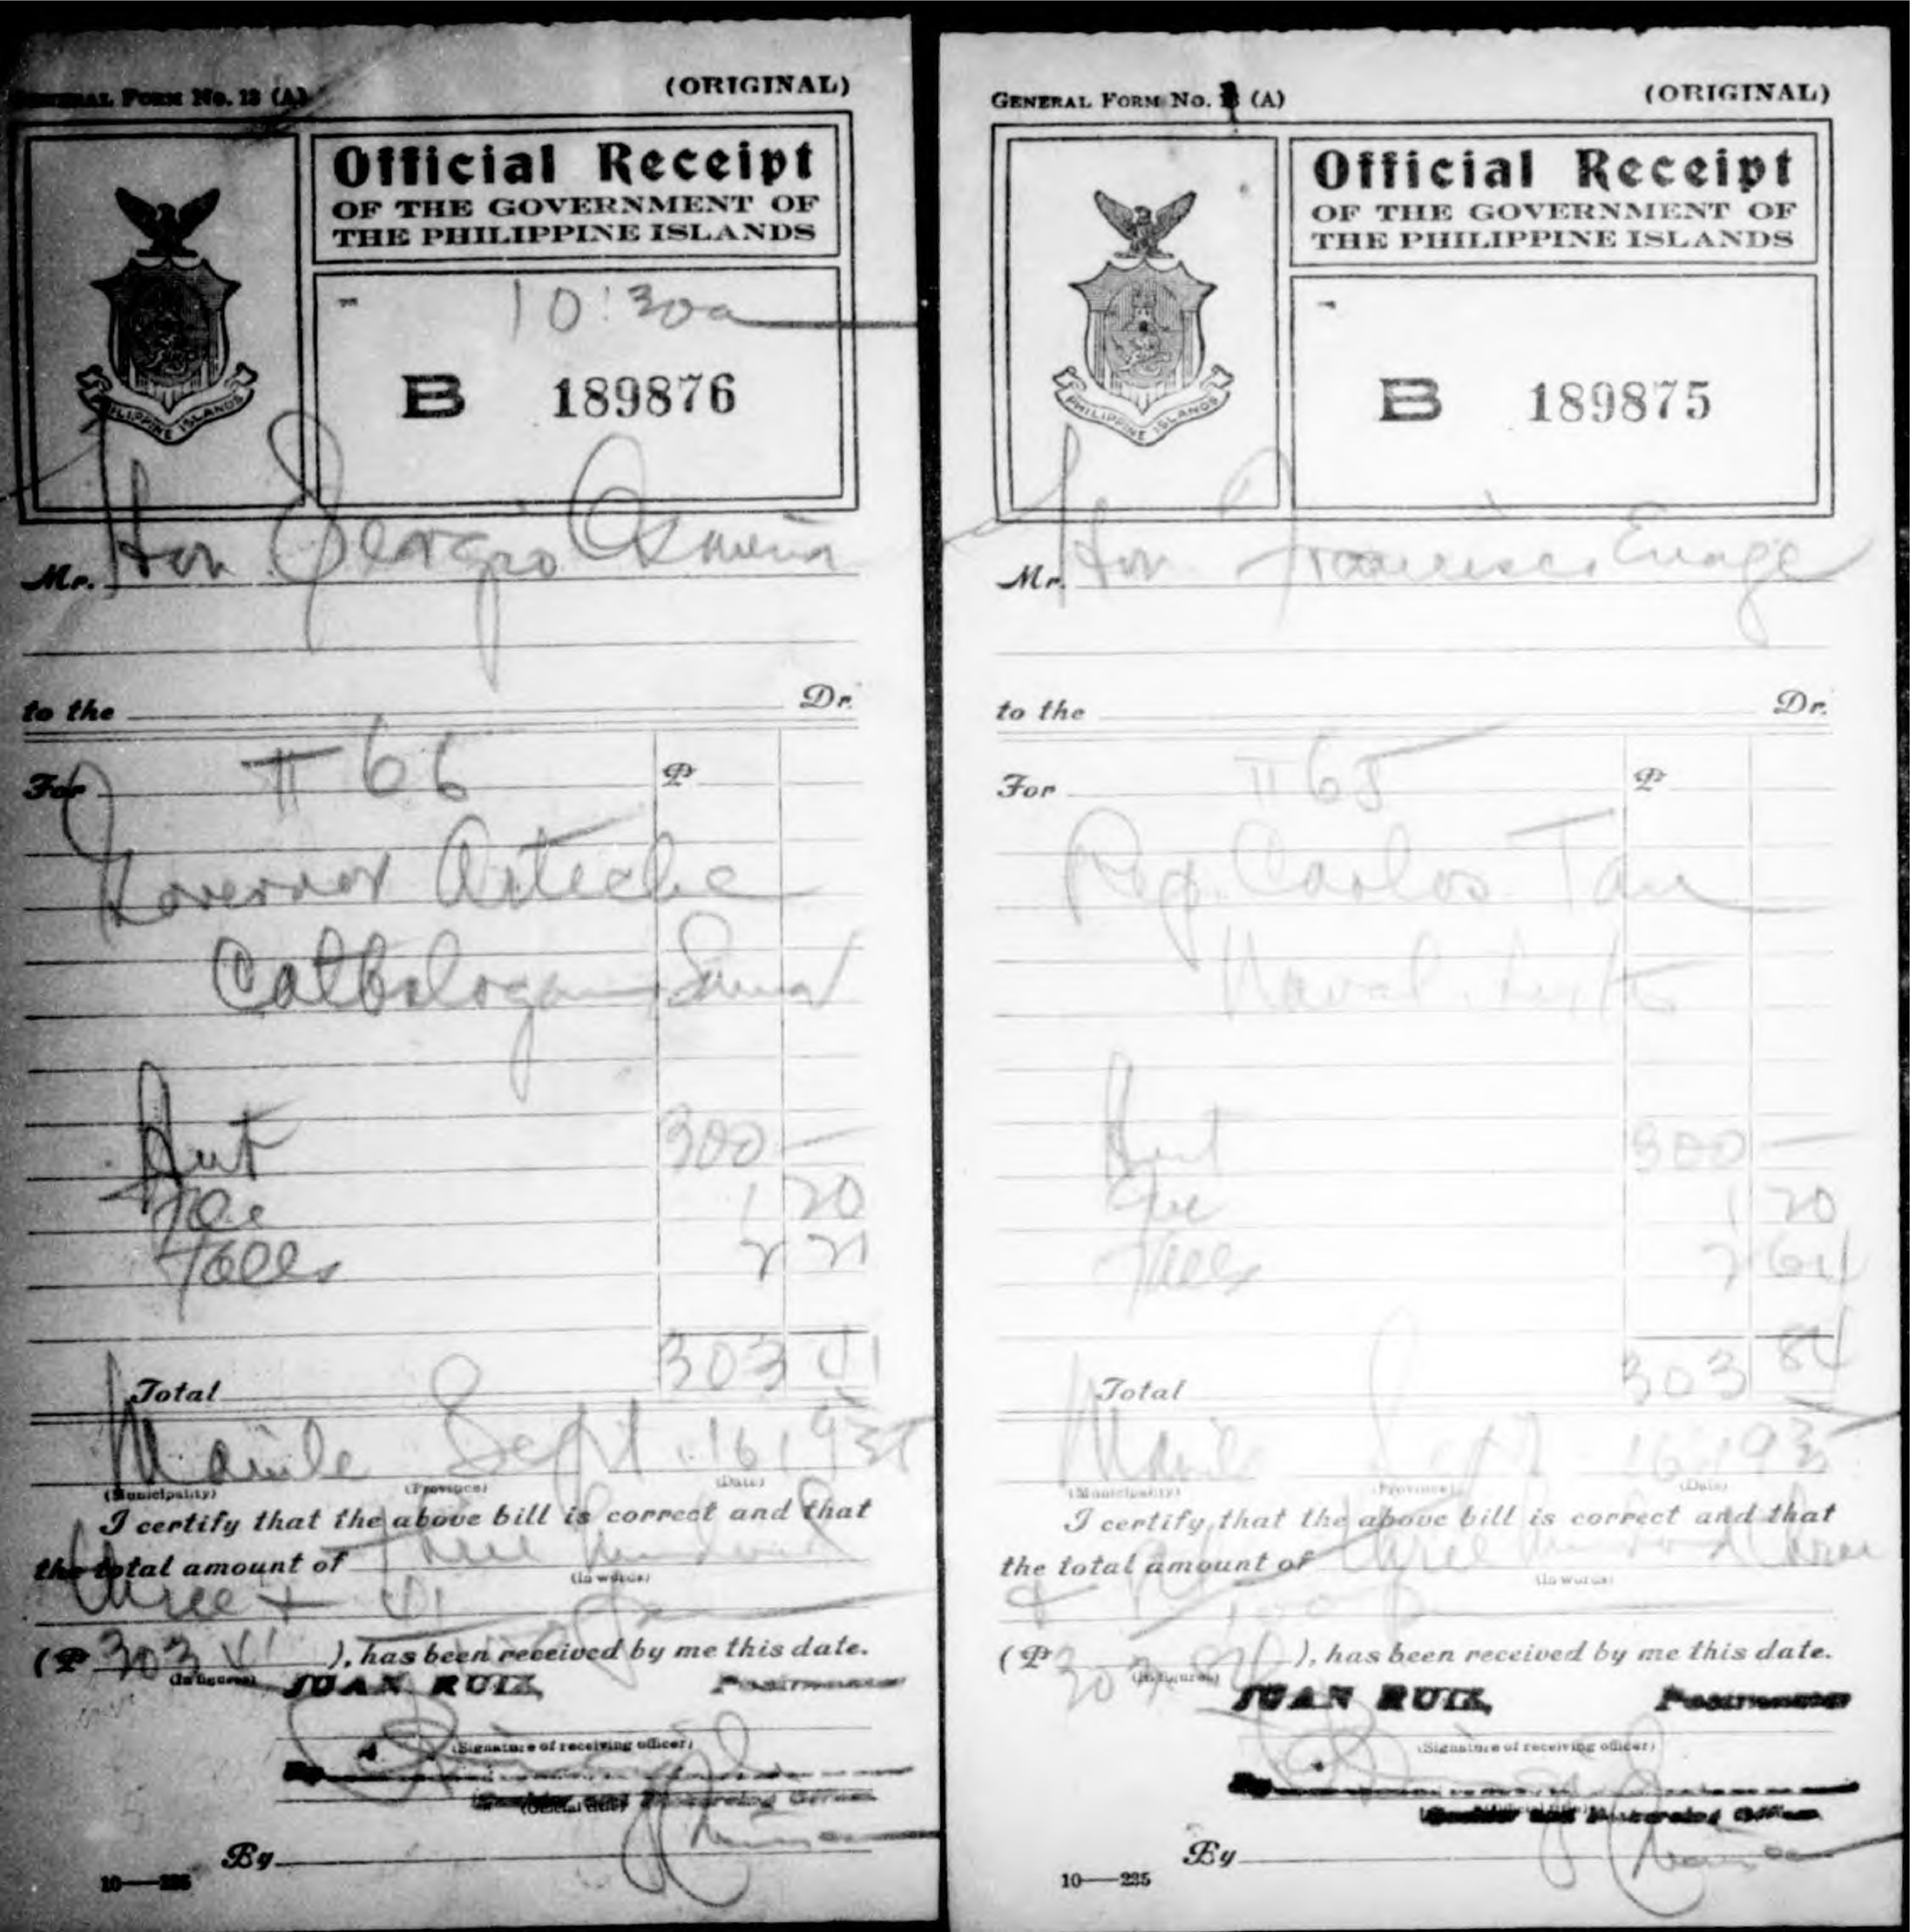 GENERAL FORM No. 13 (A)
(ORIGINAL)
Official Receipt
OF THE GOVERNMENT OF
THE PHILIPPINE ISLANDS
10:30a
B 189876
PHILIPPINE ISLANDS
Mr. Hon Sergio Osmeña
to the Dr.
For # 66 ₱
Governor Arteche
Catbalogan, Samar
300 —
Fee 1 20
Tolls 2 21
Total 303 41
Manila Sept. 16, 1935
(Municipality) (Province) (Date)
I certify that the above bill is correct and that
the total amount of Three hundred
(In words)
three + 41
(₱ 303 41 ), has been received by me this date.
(In figures)
JUAN RUIZ, Postmaster
(Signature of receiving officer)
By
Cashier and Disbursing Officer
(Official title)
By
10—225
GENERAL FORM No. (A)
(ORIGINAL)
Official Receipt
OF THE GOVERNMENT OF
THE PHILIPPINE ISLANDS
B 189875
PHILIPPINE ISLANDS
Mr. Hon. Francisco Enage
to the Dr.
For # 65 ₱
Rep. Carlos Tan
Naval, Leyte
300 —
Fee 1 20
Tolls 2 64
Total 303 84
Manila Sept 16, 1935
(Municipality) (Province) (Date)
I certify that the above bill is correct and that
the total amount of three hundred three
(In words)
& 84/100
(₱ 303 84 ), has been received by me this date.
(In figures)
JUAN RUIZ, Postmaster
(Signature of receiving officer)
By
Cashier and Disbursing Officer
By
10—225